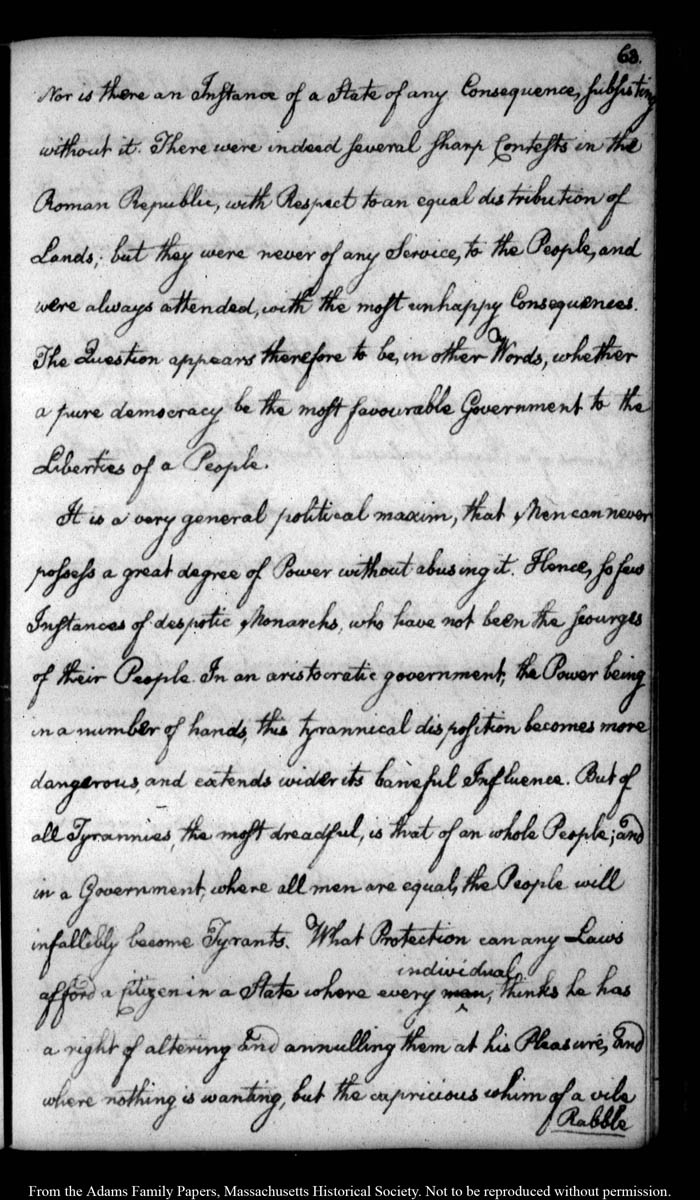 68.
Nor is there an Instance of a State of any Consequence, subsisting
without it. There were indeed several sharp Contests in the
Roman Republic, with Respect to an equal distribution of
Lands; but they were never of any Service, to the People, and
were always attended, with the most unhappy Consequences.
The Question appears therefore to be, in other Words, whether
a pure democracy be the most favourable Government to the
Liberties of a People.
It is a very general political maxim, that Men can never
possess a great degree of Power without abusing it. Hence, so few
Instances of despotic Monarchs, who have not been the scourges
of their People. In an aristocratic government, the Power being
in a number of hands, this tyrannical disposition becomes more
dangerous, and extends wider its baneful Influence. But of
all Tyrannies, the most dreadful, is that of an whole People; and
in a Government, where all men are equal, the People will
infallibly become Tyrants. What Protection can any Laws
individual
afford a citizen in a State where every man, thinks he has
a right of altering and annulling them at his Pleasure, and
where nothing is wanting, but the capricious whim of a vile
Rabble
From the Adams Family Papers, Massachusetts Historical Society. Not to be reproduced without permission.